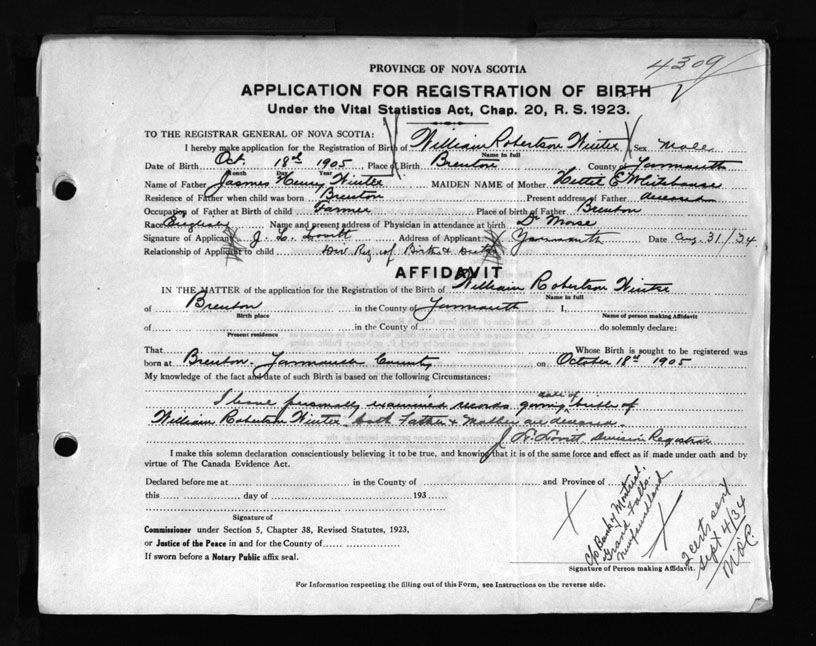 4309
PROVINCE OF NOVA SCOTIA
APPLICATION FOR REGISTRATION OF BIRTH
Under the Vital Statistics Act, Chap. 20, R. S. 1923.
TO THE REGISTRAR GENERAL OF NOVA SCOTIA:
I hereby make application for the Registration of Birth of William Robertson Winter Sex Male
Name in full
Date of Birth Oct. 18th 1905 Place of Birth Brenton County of Yarmouth
Month Day Year
Name of Father Henry Winter MAIDEN NAME of Mother E Whitehouse
Residence of Father when child was born Brenton Present address of Father deceased
Occupation of Father at Birth of child Farmer Place of birth of Father Brenton
Race English Name and present address of Physician in attendance at birth Dr Morse
Signature of Applicant J. L. Lovitt Address of Applicant Yarmouth Date Aug. 31/34
Relationship of Applicant to child Div Reg of Birth & Death
AFFIDAVIT
IN THE MATTER of the application for the Registration of the Birth of William Robertson Winter
Name in full
of Brenton in the County of Yarmouth I,
Birth place Name of person making Affidavit
of in the County of do solemnly declare:
Present residence
That Whose Birth is sought to be registered was
born at Brenton. Yarmouth County on October 18th 1905
My knowledge of the fact and date of such Birth is based on the following Circumstances:
I have personally examined records giving date of birth of
William Robertson Winter both Father & Mother are deceased.
J. L. Lovitt Division Registrar
I make this solemn declaration conscientiously believing it to be true, and knowing that it is of the same force and effect as if made under oath and by
virtue of The Canada Evidence Act.
Declared before me at in the County of and Province of
this day of 193
Signature of
Commissioner under Section 5, Chapter 38, Revised Statutes, 1923,
or Justice of the Peace in and for the County of
If sworn before a Notary Public affix seal.
c/o Bank of Montreal.
Grand Falls.
Newfoundland
2 certs sent
Sept 4/34
Signature of Person making Affidavit.
For Information respecting the filling out of this Form, see Instructions on the reverse side.